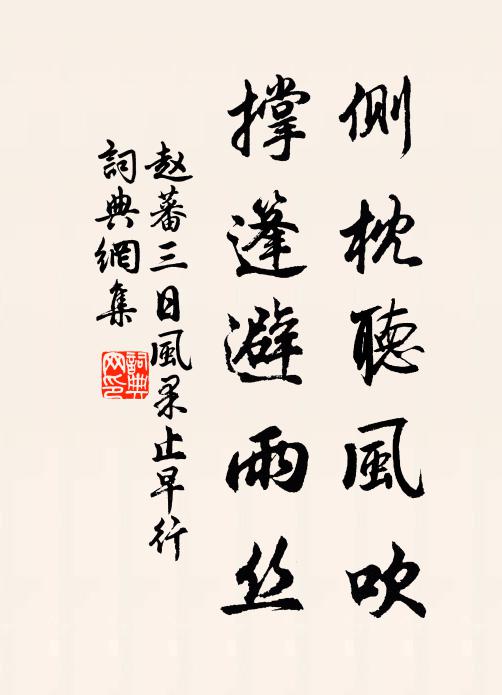 側枕聽風吹
撑篷避雨丝
赵蕃三日風果止早行
詞典網集
詞典网印